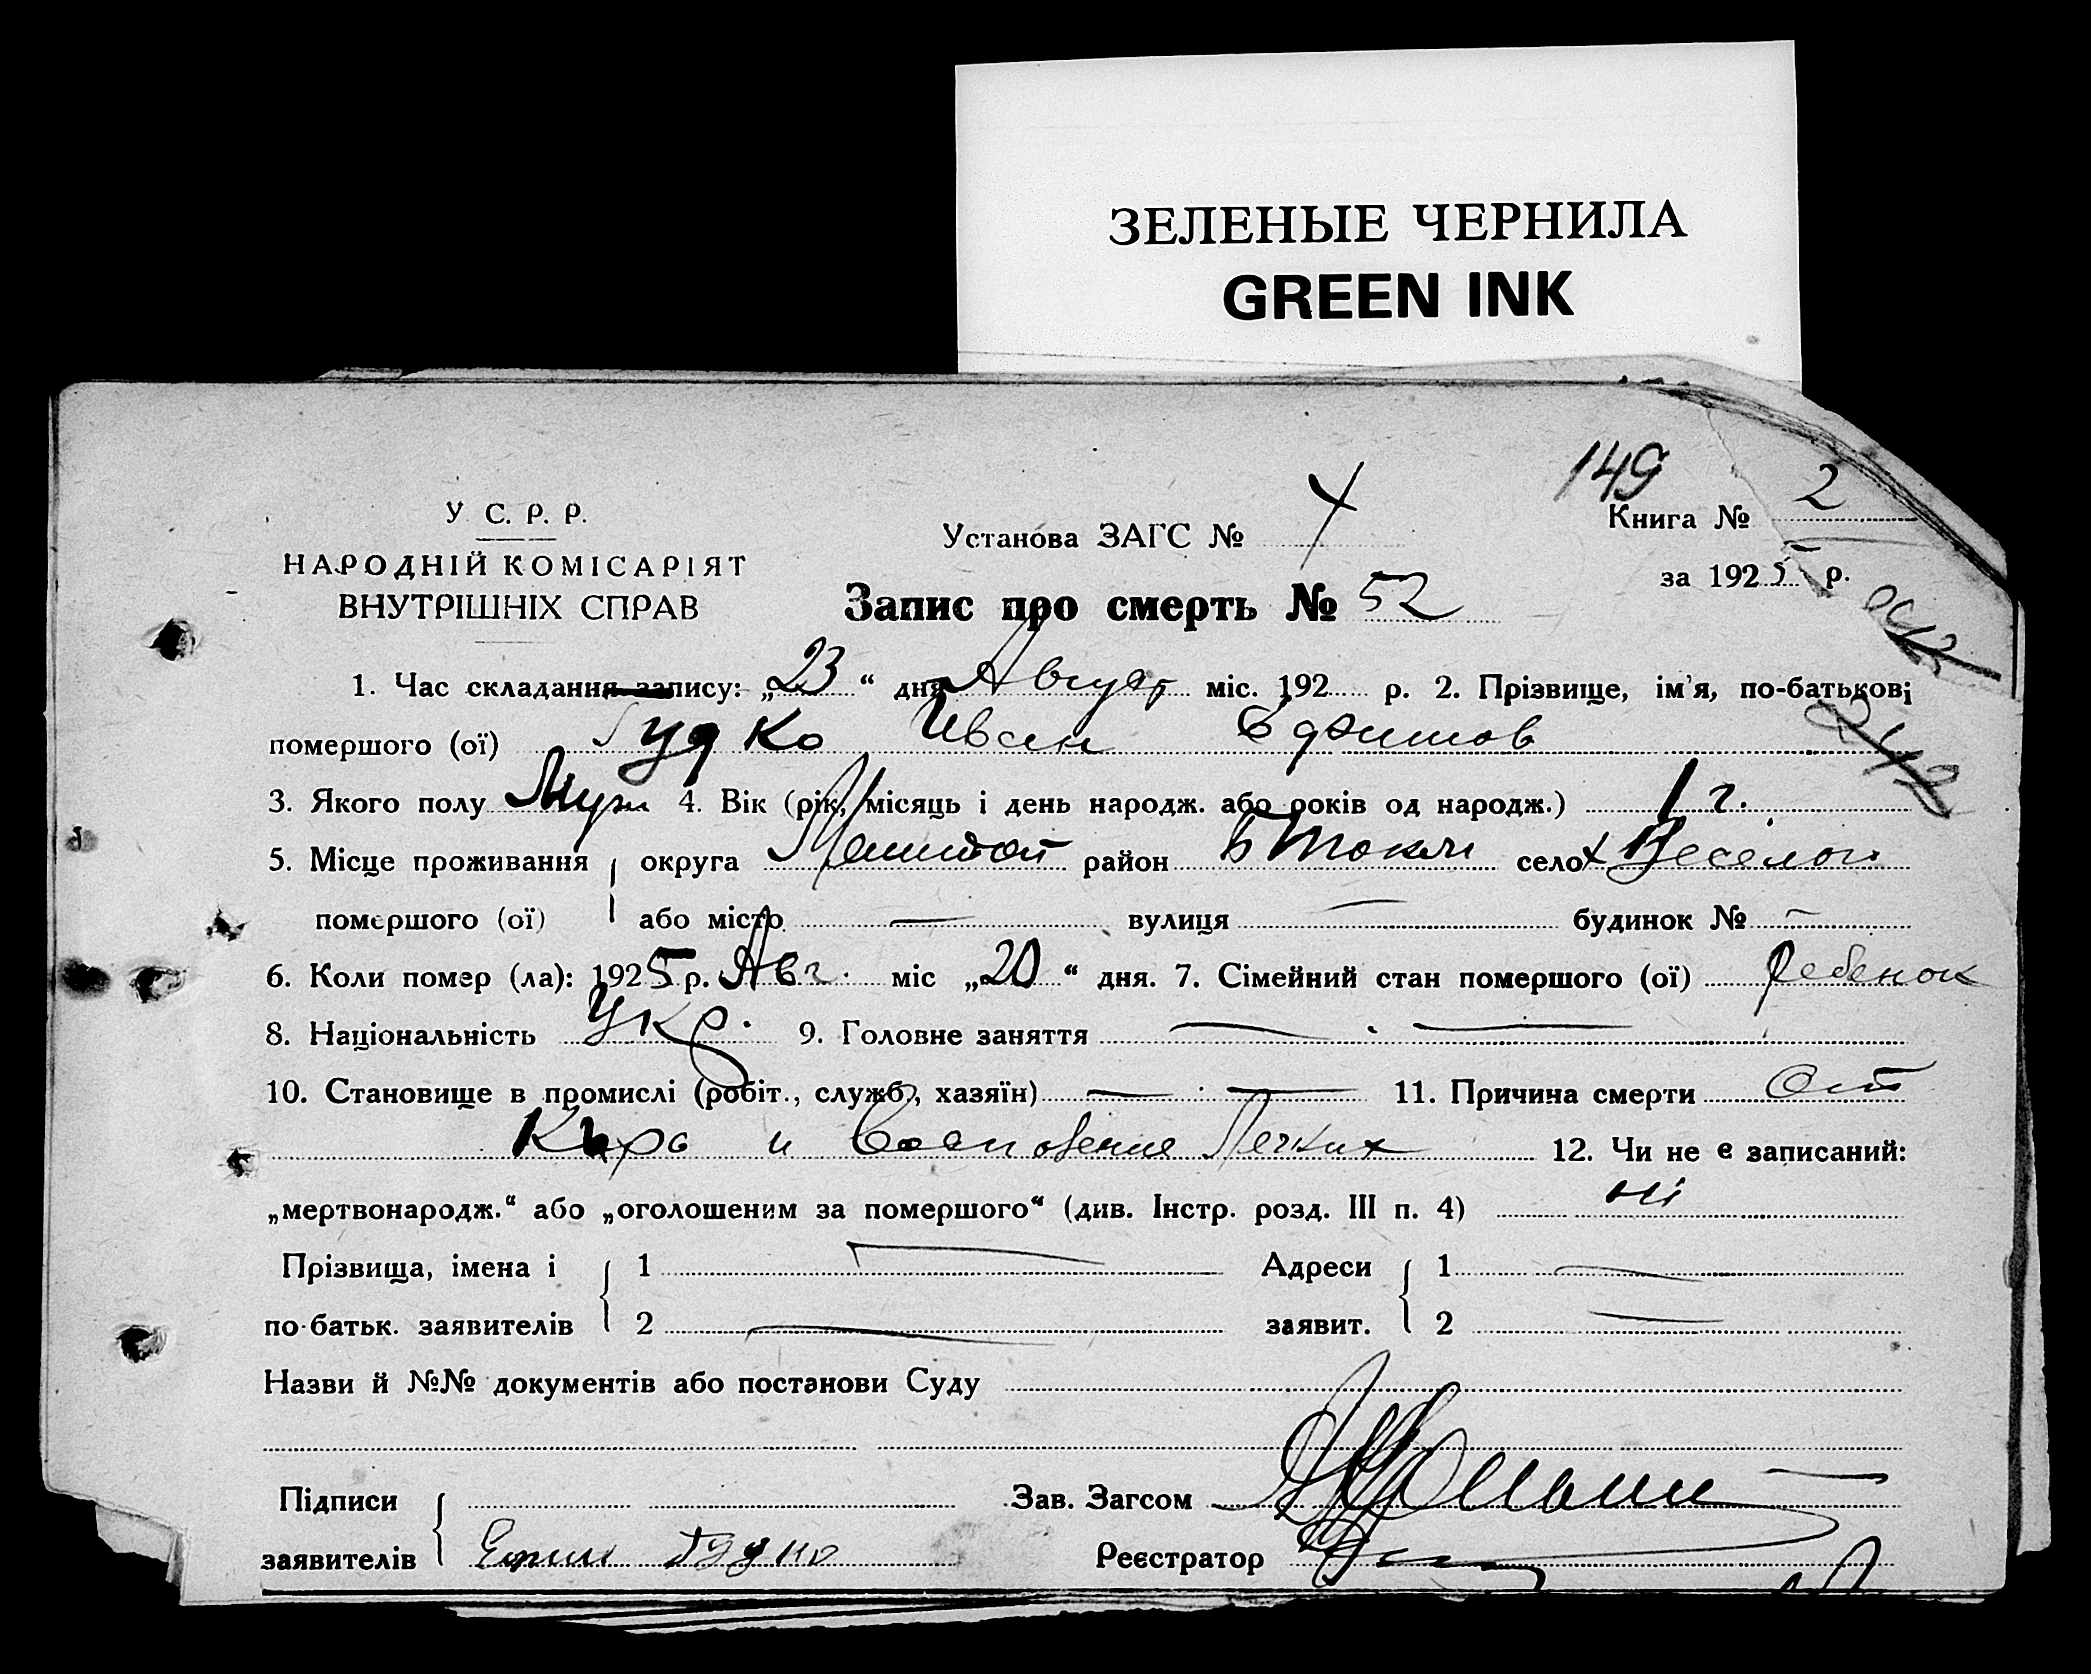 ЗЕЛЕНЫЕ ЧЕРНИЛА
GREEN INK
149
У. С. Р. Р.
НАРОДНІЙ КОМІСАРІЯТ
ВНУТРІШНІХ СПРАВ
Установа ЗАГС №
Книга № 2
за 1925 р.
Запис про смерть № 52
1. Час складання запису: „23“ дня Август міс. 192 р. 2. Прізвище, ім'я, по-батькові
помершого (ої) Гудко Иван Ефимов
3. Якого полу Муж 4. Вік (рік, місяць і день народж. або років од народж.) 1 г.
5. Місце проживання округа район Б Токм село х Веселой
помершого (ої) або місто — вулиця — будинок № —
6. Коли помер (ла): 1925 р. Авг. міс „20“ дня. 7. Сімейний стан помершого (ої) Ребенок
8. Національність Укр. 9. Головне заняття — . —
10. Становище в промислі (робіт., служб., хазяїн) — . — 11. Причина смерти От
и Легких 12. Чи не є записаний:
„мертвонародж.“ або „оголошеним за помершого“ (див. Інстр. розд. III п. 4) ні
Прізвища, імена і 1 — Адреси 1 —
по-батьк. заявителів 2 — заявит. 2 —
Назви й №№ документів або постанови Суду
Підписи Зав. Загсом
заявителів Ефим Гудко Реєстратор